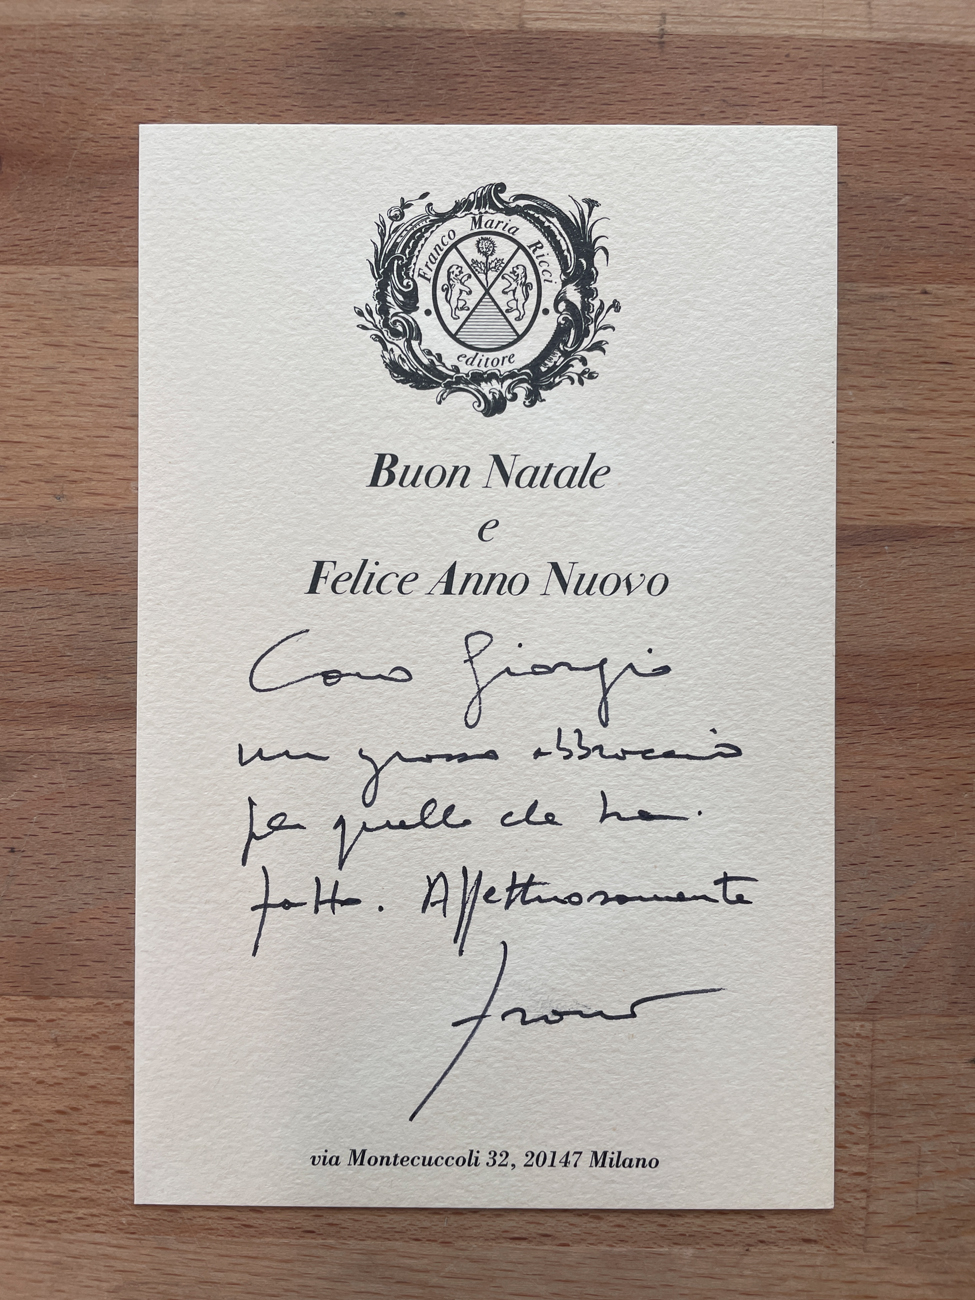 Franco Maria Ricci
editore
Buon Natale
e
Felice Anno Nuovo
Caro Giorgio
un grosso abbraccio
per quello che hai
fatto. Affettuosamente
Franco
via Montecuccoli 32, 20147 Milano